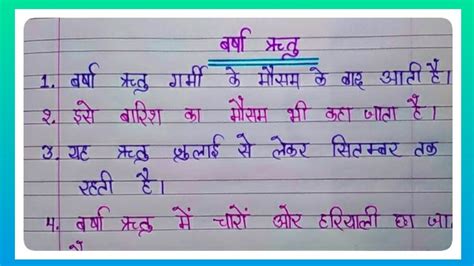 बर्षा ऋतु
1. बर्षा ऋतु गर्मी के मौसम के बाद आती है।
२. इसे बारिश का मौसम भी कहा जाता है।
3. यह ऋतु जुलाई से लेकर सितम्बर तक
रहती है।
4. बर्षा ऋतु में चारों ओर हरियाली छा जा